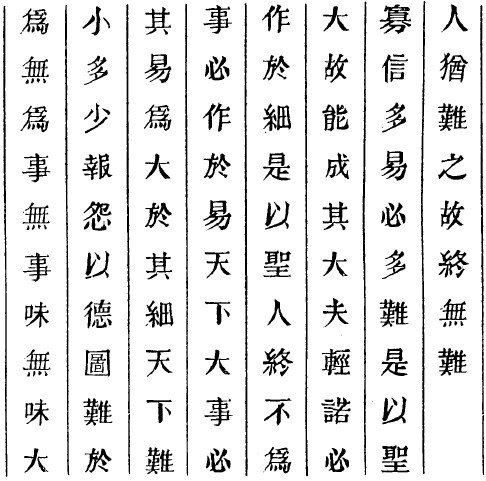 爲無爲事無事味無味大
小多少報怨以德圖難於
其易爲大於其細天下難
事必作於易天下大事必
作於細是以聖人終不爲
大故能成其大夫輕諾必
寡信多易必多難是以聖
人猶難之故終無難